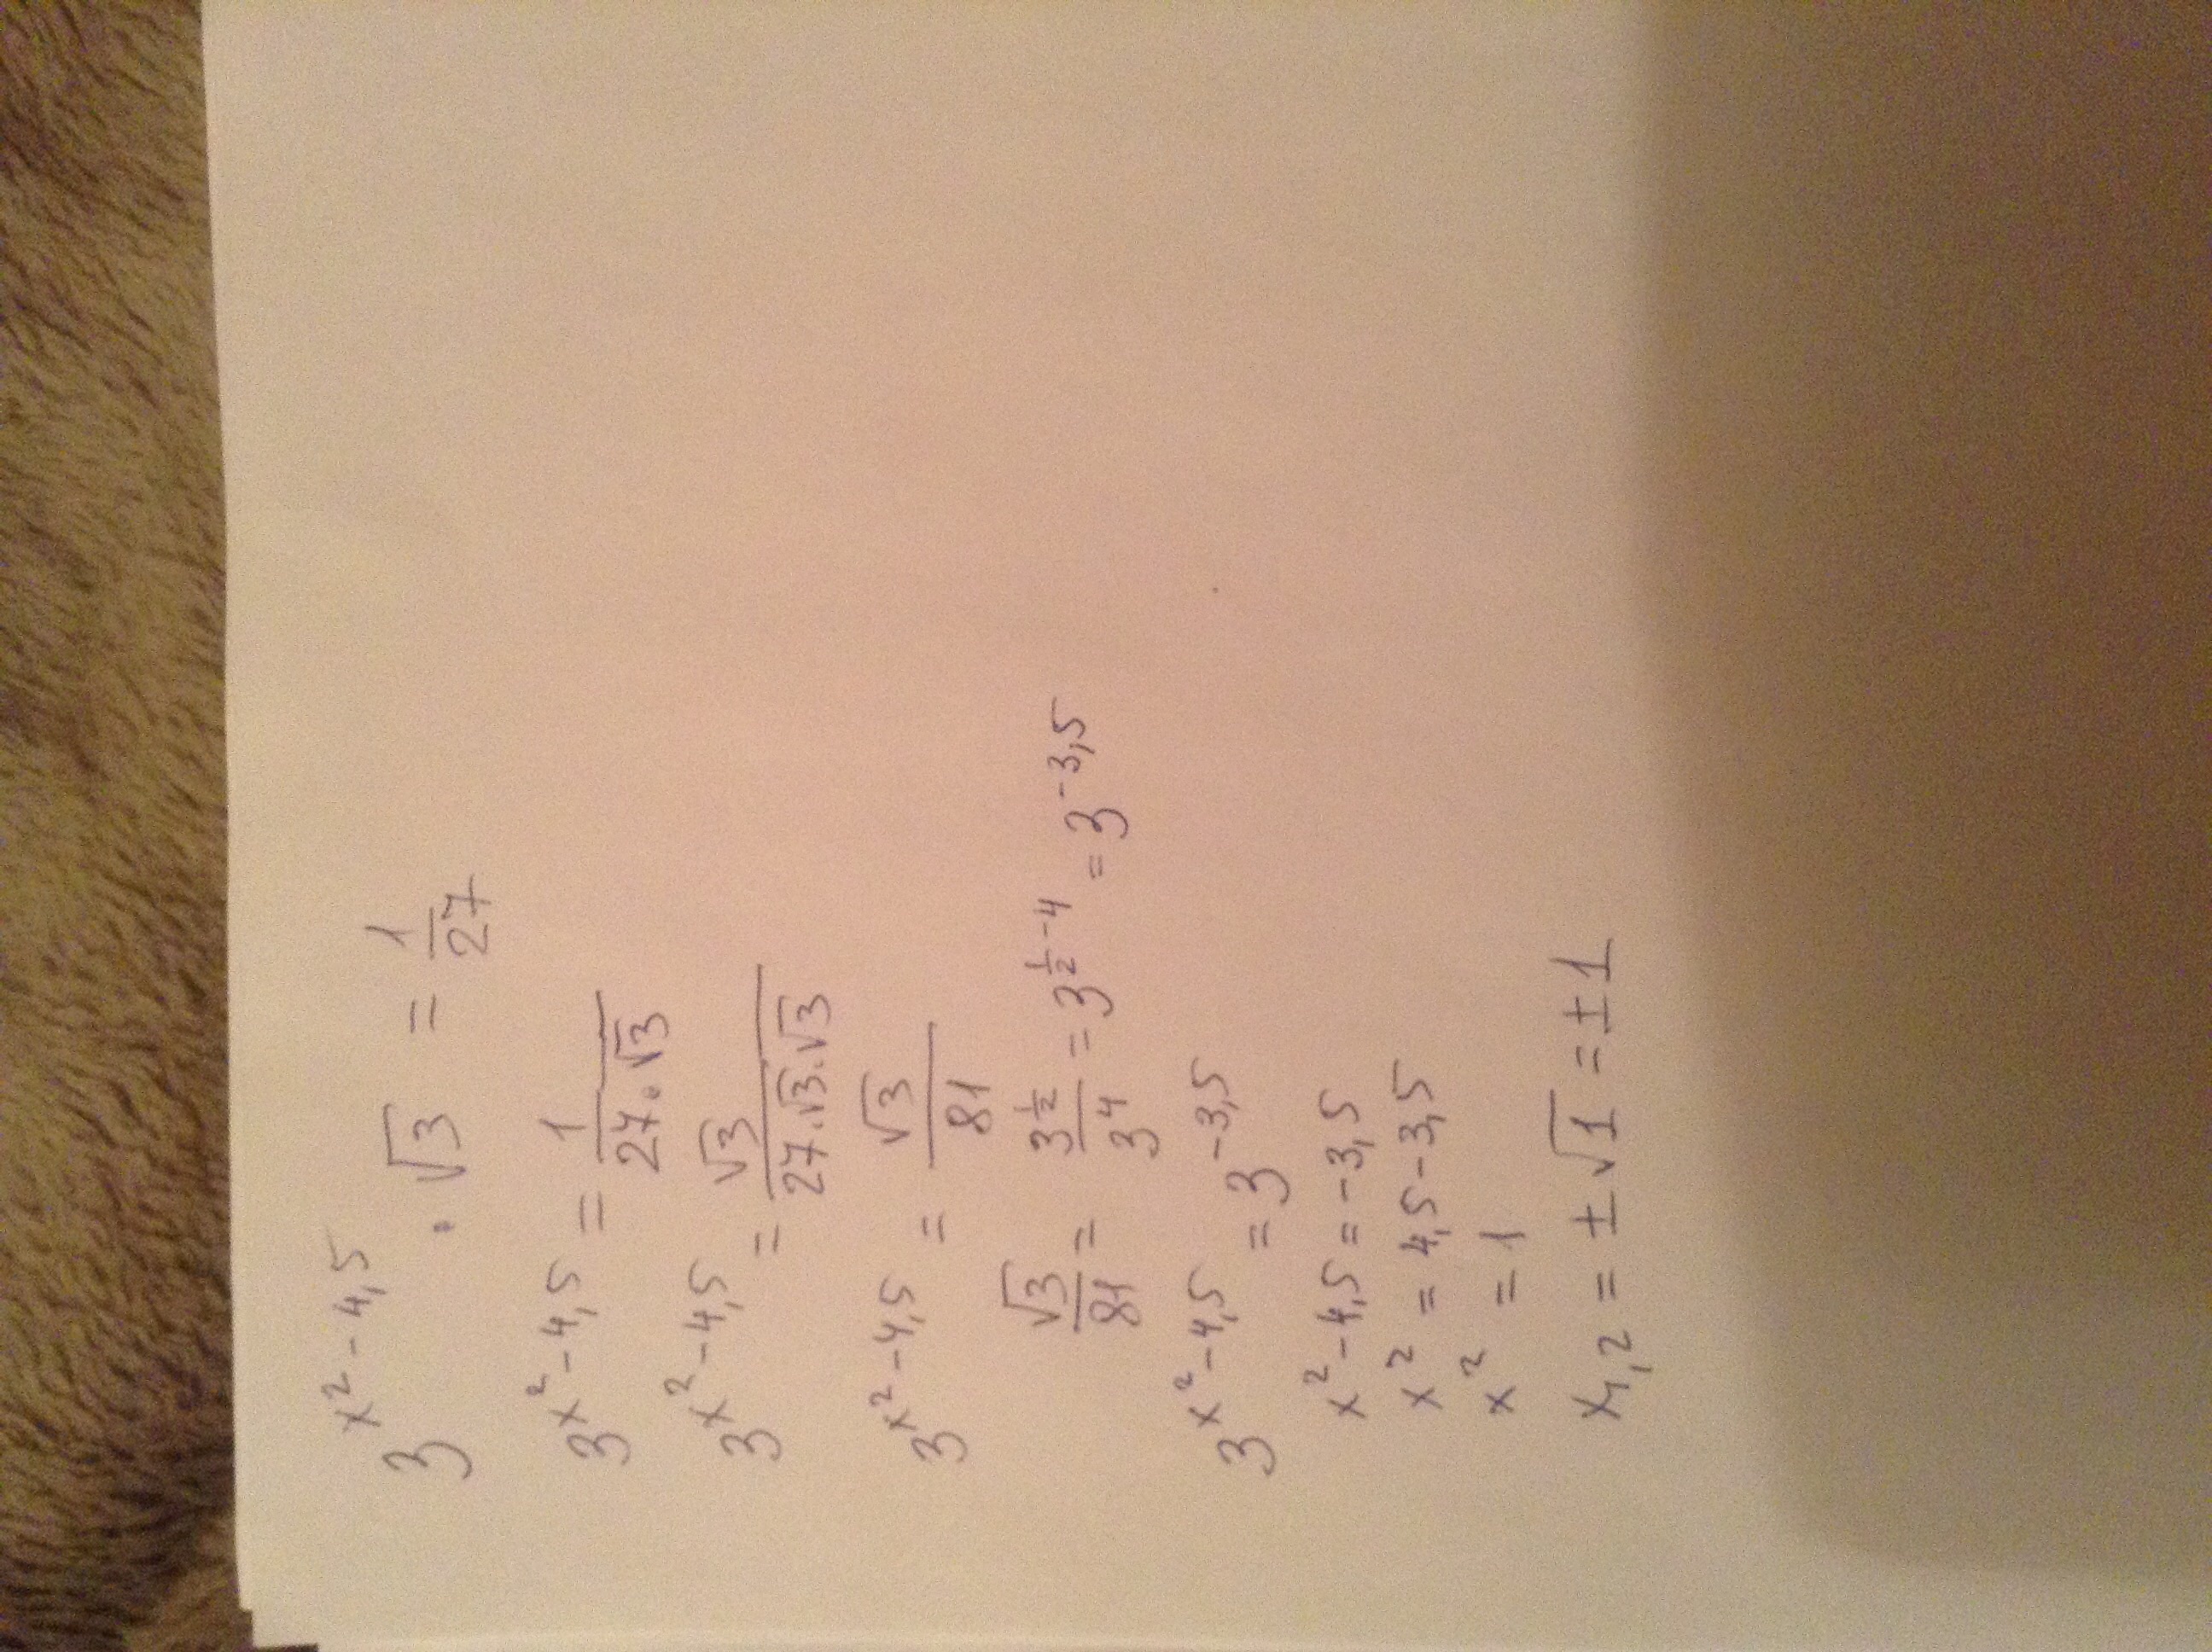 3^{x^2-4,5} · √3 = 1/27
3^{x^2-4,5} = 1/(27·√3)
3^{x^2-4,5} = √3/(27·√3·√3)
3^{x^2-4,5} = √3/81
√3/81 = 3^{1/2}/3^4 = 3^{1/2-4} = 3^{-3,5}
3^{x^2-4,5} = 3^{-3,5}
x^2-4,5 = -3,5
x^2 = 4,5-3,5
x^2 = 1
x_{1,2} = ±√1 = ±1